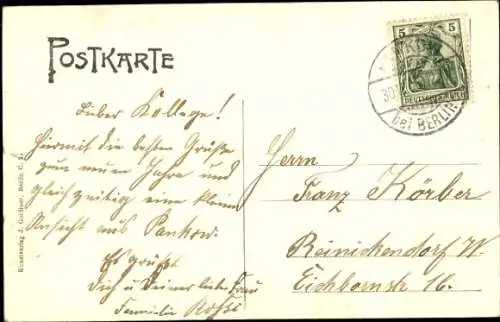 POSTKARTE
5 5
DEUTSCHES REICH
30.
bei BERLIN
Lieber Kollege!
Hiermit die besten Grüße
zum neuen Jahre und
gleichzeitig eine kleine
Ansicht aus Pankow.
Es grüßt
Dich u Deiner liebe Frau
Familie
Herrn
Franz Körber
Reinickendorf W.
Eichbornstr 16.
Kunstverlag J. Goldiner, Berlin C.